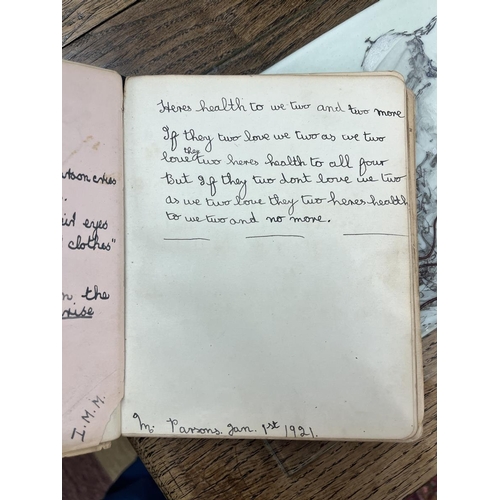 Heres health to we two and two more
If they two love we two as we two
love they two heres health to all four
But If they two dont love we two
as we two love they two heres health
to we two and no more.
M. Parsons. Jan. 1st 1921.
eyes
clothes"
the
I. M. M.